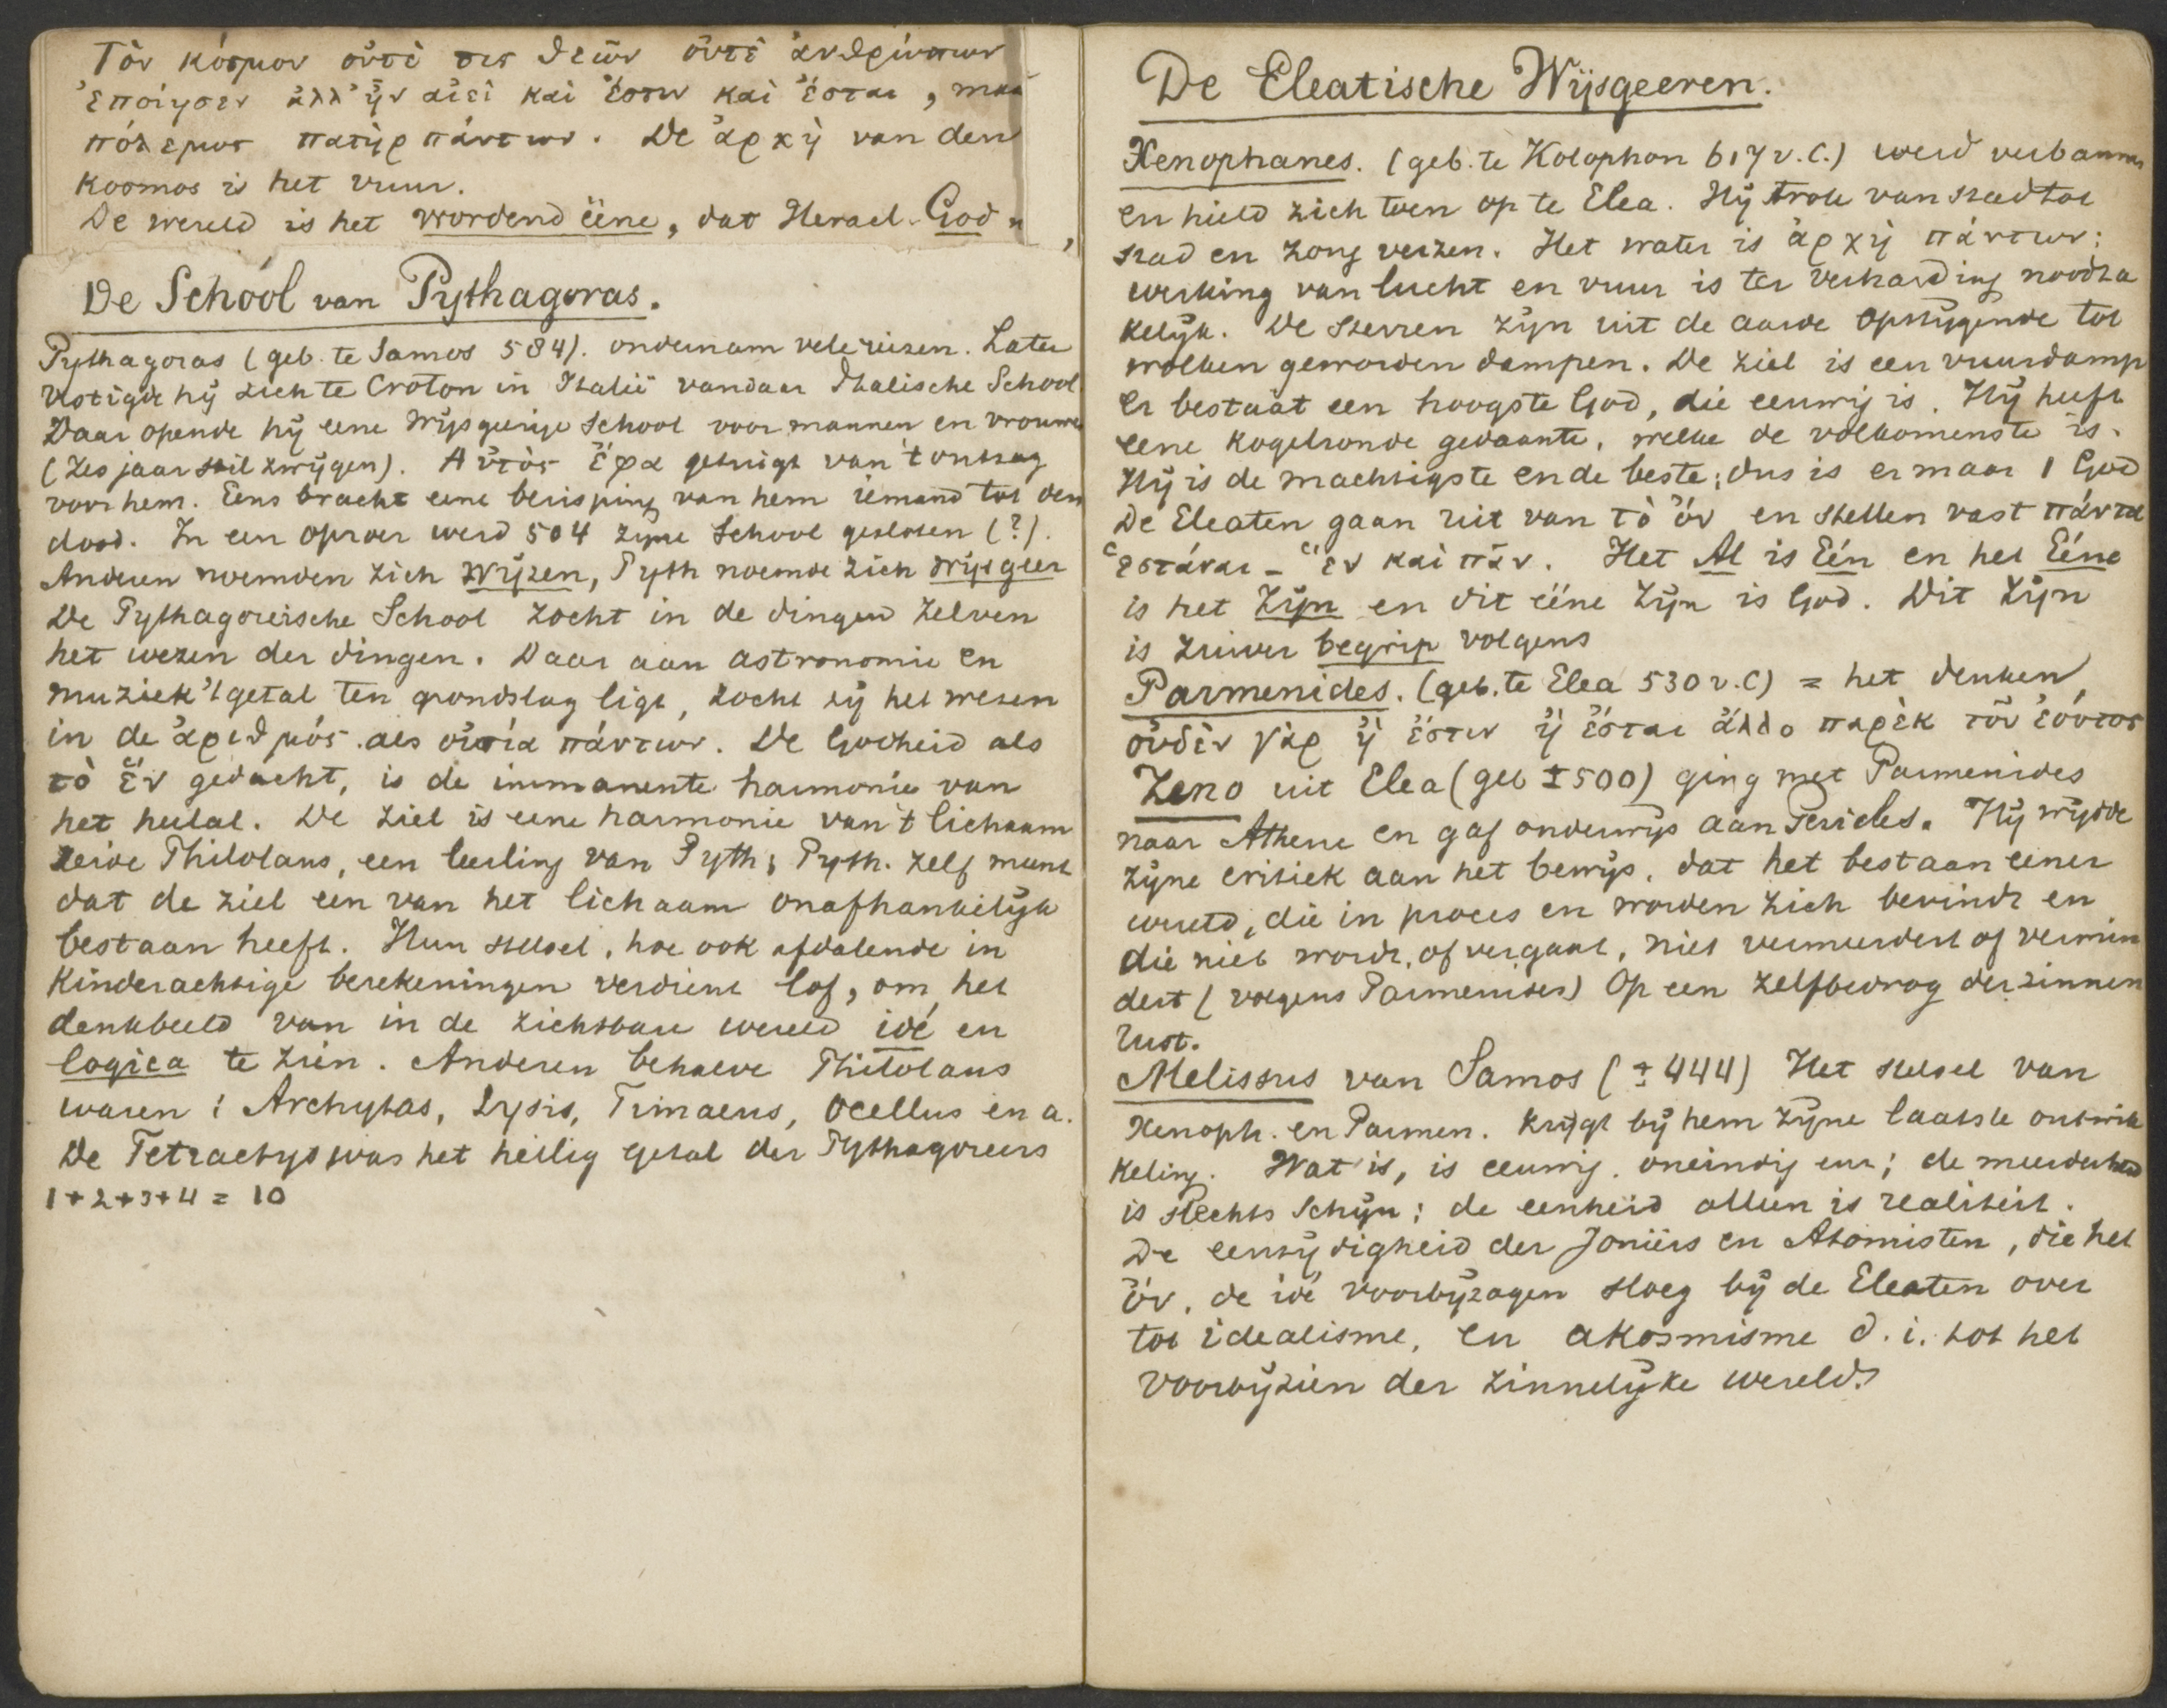 Τὸν κόσμον οὔτέ τις θεῶν οὔτέ ἀνθρώπων
ἐποίησεν ἀλλ' ἦν αἰεὶ καὶ ἔστιν καὶ ἔσται, maa
πόλεμος πατὴρ πάντων. De ἀρχὴ van den
Kosmos is het vuur.
De wereld is het wordend ééne, dat Heracl. God n
De School van Pythagoras.
Pythagoras (geb. te Samos 584). ondernam vele reizen. Later
vestigde hij zich te Croton in Italië vandaar Italische School
Daar opende hij eene wijsgeerige School voor mannen en vrouwen
(zes jaar stil zwijgen). Αὐτὸς ἔφα getuigt van 't ontzag
voor hem. Eens bracht eene berisping van hem iemand tot den
dood. In een oproer werd 504 zijne School gesloten (?).
Anderen noemden zich Wijzen, Pyth noemde zich Wijsgeer
De Pythagoreïsche School zocht in de dingen zelven
het wezen der dingen. Daar aan astronomie en
muziek 't getal ten grondslag ligt, zocht zij het wezen
in de ἀριθμός als οὐσία πάντων. De Godheid als
τὸ ἕν gedacht, is de immanente harmonie van
het heelal. De ziel is eene harmonie van 't lichaam
zeide Philolaus, een leerling van Pyth; Pyth. zelf meent
dat de ziel een van het lichaam onafhankelijk
bestaan heeft. Hun stelsel, hoe ook afdalende in
Kinderachtige berekeningen verdient lof, om het
denkbeeld van in de zichtbare wereld idé en
logica te zien. Anderen behalve Philolaus
waren: Archytas, Lysis, Timaeus, Ocellus en a.
De Tetractys was het heilig getal der Pythagoreers
1+2+3+4 = 10
De Eleatische Wijsgeeren.
Xenophanes. (geb. te Kolophon 617 v.C.) werd verbannen
en hield zich toen op te Elea. Hij trok van stad tot
stad en zong verzen. Het water is ἀρχὴ πάντων;
werking van lucht en vuur is ter verharding noodza
kelijk. De sterren zijn uit de aarde opstijgende tot
wolken geworden dampen. De ziel is een vuurdamp
Er bestaat een hoogste God, die eeuwig is. Hij heeft
eene kogelronde gedaante, welke de volkomenste is.
Hij is de machtigste en de beste; dus is er maar 1 God
De Eleaten gaan uit van τὸ ὄν en stellen vast πάντα
ἑστάναι - ἕν καὶ πᾶν. Het Al is Eén en het Eéne
is het Zijn en dit ééne Zijn is God. Dit Zijn
is zuiver begrip volgens
Parmenides. (geb. te Elea 530 v.C) = het denken,
οὐδὲν γὰρ ἢ ἔστιν ἢ ἔσται ἄλλο παρὲκ τοῦ ἐόντος
Zeno uit Elea (geb ± 500) ging met Parmenides
naar Athene en gaf onderwijs aan Pericles. Hij wijdde
zijne critiek aan het bewijs, dat het bestaan eener
wereld, die in proces en worden zich bevindt en
die niet wordt, of vergaat, niet vermeerdert of vermin
dert (volgens Parmenides) op een zelfbedrog der zinnen
rust.
Melissus van Samos (± 444) Het stelsel van
Xenoph. en Parmen. krijgt bij hem zijne laatste ontwik
keling. Wat is, is eeuwig, oneindig een; de meerderheid
is slechts Schijn; de eenheid alleen is realiteit.
De eenzijdigheid der Joniërs en Atomisten, die het
ὄν, de idé voorbijzagen sloeg bij de Eleaten over
tot idealisme, en akosmisme d.i. tot het
voorbijzien der zinnelijke wereld.